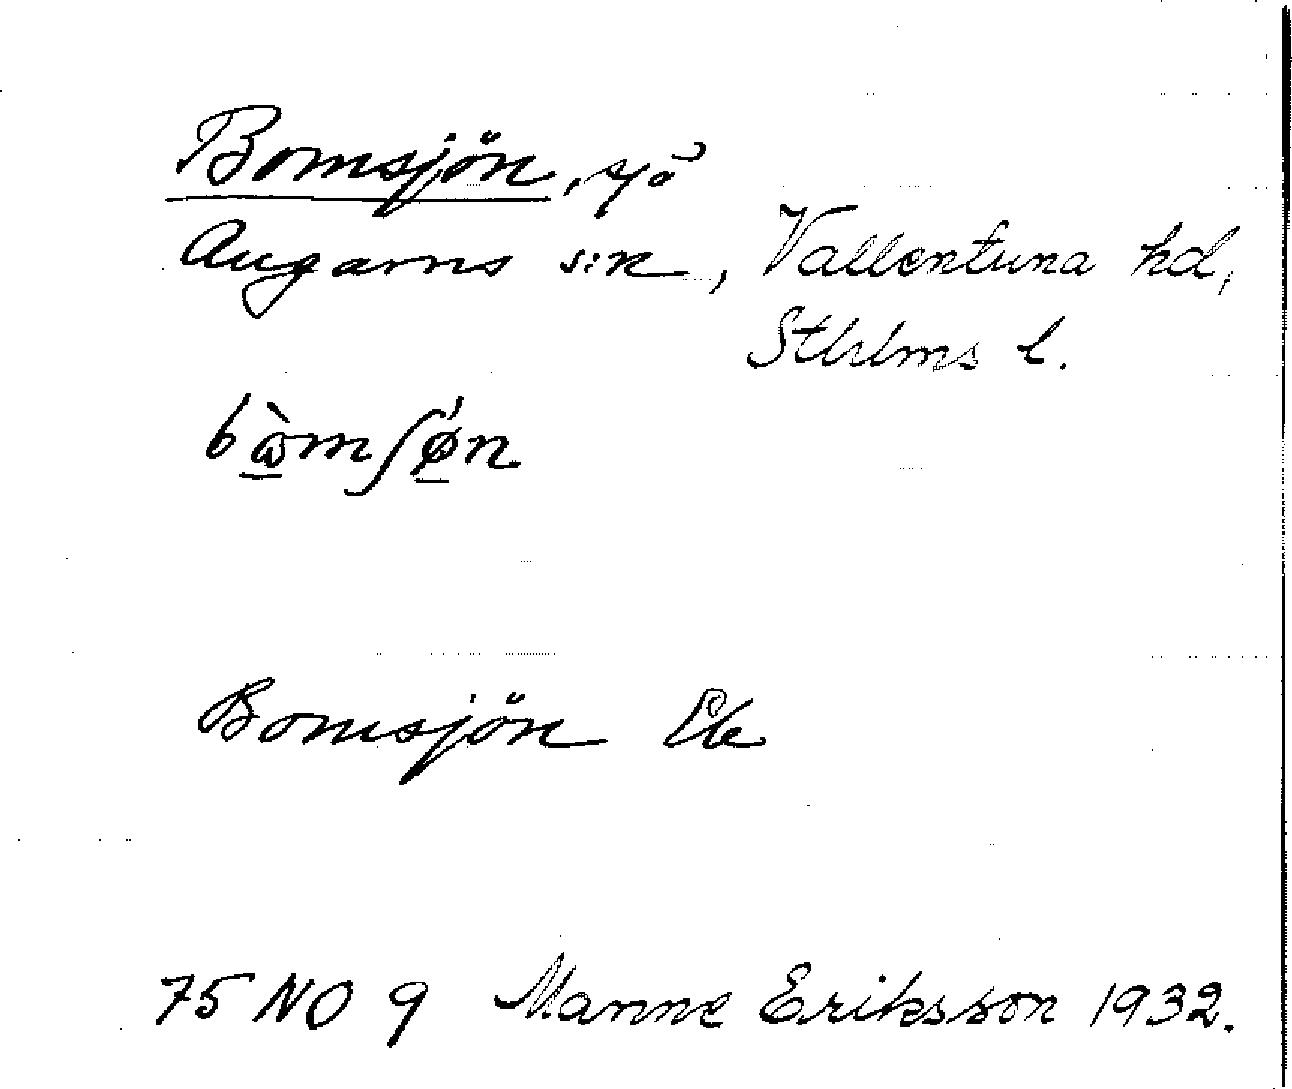 Bomsjön, sjö
Angarns s:n, Vallentuna hd,
Sthlms l.
bὼmʃǿn
Bomsjön Ek
75 NO 9 Manne Eriksson 1932.